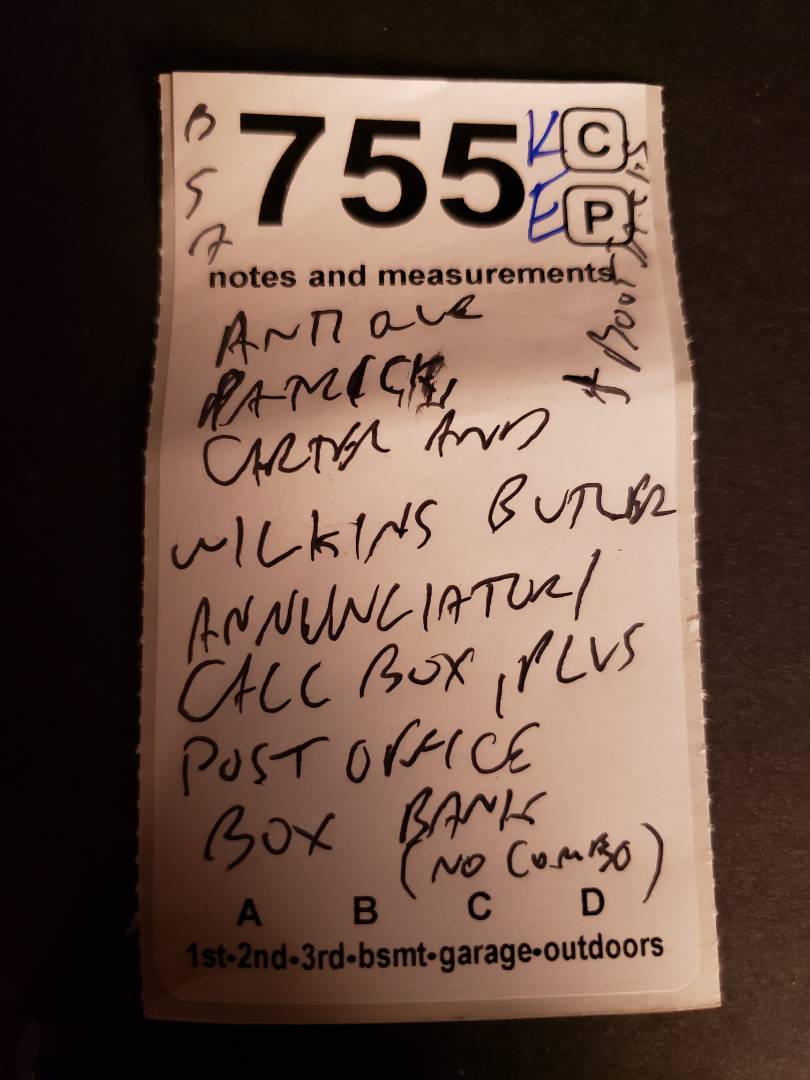 B 755 K C
S E P
A
notes and measurements
ANTIQUE
PATRICK,
CARTER AND
WILKINS BUTLER
ANNUNCIATOR/
CALL BOX, PLUS
POST OFFICE
BOX BANK
(NO COMBO)
A B C D
1st•2nd•3rd•bsmt•garage•outdoors